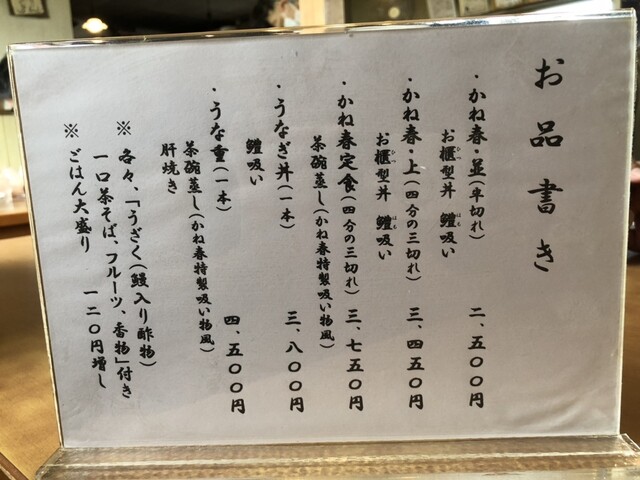 お品書き
・かね春・並(半切れ) 二、五〇〇円
お櫃型丼 鱧吸い
・かね春・上(四分の三切れ) 三、四五〇円
お櫃型丼 鱧吸い
・かね春定食(四分の三切れ) 三、七五〇円
茶碗蒸し(かね春特製吸い物風)
・うなぎ丼(一本) 三、八〇〇円
鱧吸い
・うな重(一本) 四、五〇〇円
茶碗蒸し(かね春特製吸い物風)
肝焼き
※ 各々、「うざく(鰻入り酢物)
一口茶そば、フルーツ、香物」付き
※ ごはん大盛り 一二〇円増し